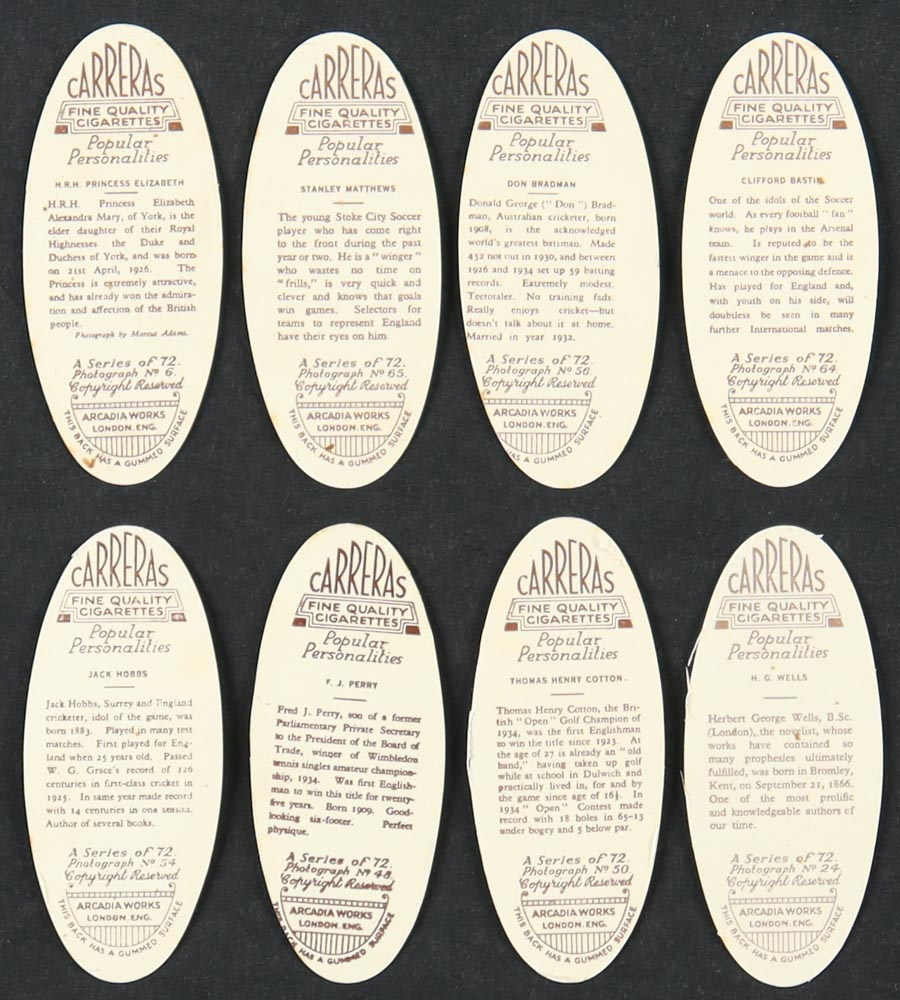 CARRERAS
FINE QUALITY
CIGARETTES
Popular
Personalities
H.R.H. PRINCESS ELIZABETH
H.R.H. Princess Elizabeth
Alexandra Mary, of York, is the
elder daughter of their Royal
Highnesses the Duke and
Duchess of York, and was born
on 21st April, 1926. The
Princess is extremely attractive,
and has already won the admira-
tion and affection of the British
people.
Photograph by Marcus Adams.
A Series of 72.
Photograph Nº 6.
Copyright Reserved
ARCADIA WORKS
LONDON. ENG.
THIS BACK HAS A GUMMED SURFACE
CARRERAS
FINE QUALITY
CIGARETTES
Popular
Personalities
STANLEY MATTHEWS
The young Stoke City Soccer
player who has come right
to the front during the past
year or two. He is a "winger"
who wastes no time on
"frills," is very quick and
clever and knows that goals
win games. Selectors for
teams to represent England
have their eyes on him.
A Series of 72.
Photograph Nº 65.
Copyright Reserved
ARCADIA WORKS
LONDON. ENG.
THIS BACK HAS A GUMMED SURFACE
CARRERAS
FINE QUALITY
CIGARETTES
Popular
Personalities
DON BRADMAN
Donald George ("Don") Brad-
man, Australian cricketer, born
1908, is the acknowledged
world's greatest batsman. Made
452 not out in 1930, and between
1926 and 1934 set up 59 batting
records. Extremely modest.
Teetotaler. No training fads.
Really enjoys cricket—but
doesn't talk about it at home.
Married in year 1932.
A Series of 72.
Photograph Nº 56.
Copyright Reserved
ARCADIA WORKS
LONDON. ENG.
THIS BACK HAS A GUMMED SURFACE
CARRERAS
FINE QUALITY
CIGARETTES
Popular
Personalities
CLIFFORD BASTIN
One of the idols of the Soccer
world. As every football "fan"
knows, he plays in the Arsenal
team. Is reputed to be the
fastest winger in the game and is
a menace to the opposing defence.
Has played for England and,
with youth on his side, will
doubtless be seen in many
further International matches.
A Series of 72.
Photograph Nº 64.
Copyright Reserved
ARCADIA WORKS
LONDON. ENG.
THIS BACK HAS A GUMMED SURFACE
CARRERAS
FINE QUALITY
CIGARETTES
Popular
Personalities
JACK HOBBS
Jack Hobbs, Surrey and England
cricketer, idol of the game, was
born 1883. Played in many test
matches. First played for Eng-
land when 25 years old. Passed
W. G. Grace's record of 126
centuries in first-class cricket in
1925. In same year made record
with 14 centuries in one season.
Author of several books.
A Series of 72.
Photograph Nº 54.
Copyright Reserved
ARCADIA WORKS
LONDON. ENG.
THIS BACK HAS A GUMMED SURFACE
CARRERAS
FINE QUALITY
CIGARETTES
Popular
Personalities
F. J. PERRY
Fred J. Perry, son of a former
Parliamentary Private Secretary
to the President of the Board of
Trade, winner of Wimbledon
tennis singles amateur champion-
ship, 1934. Was first English-
man to win this title for twenty-
five years. Born 1909. Good-
looking six-footer. Perfect
physique.
A Series of 72.
Photograph Nº 48.
Copyright Reserved
ARCADIA WORKS
LONDON. ENG.
THIS BACK HAS A GUMMED SURFACE
CARRERAS
FINE QUALITY
CIGARETTES
Popular
Personalities
THOMAS HENRY COTTON.
Thomas Henry Cotton, the Bri-
tish "Open" Golf Champion of
1934, was the first Englishman
to win the title since 1923. At
the age of 27 is already an "old
hand," having taken up golf
while at school in Dulwich and
practically lived in, for and by
the game since age of 16½. In
1934 "Open" Contest made
record with 18 holes in 65-13
under bogey and 5 below par.
A Series of 72.
Photograph Nº 50.
Copyright Reserved
ARCADIA WORKS
LONDON. ENG.
THIS BACK HAS A GUMMED SURFACE
CARRERAS
FINE QUALITY
CIGARETTES
Popular
Personalities
H. G. WELLS
Herbert George Wells, B.Sc.
(London), the novelist, whose
works have contained so
many prophesies ultimately
fulfilled, was born in Bromley,
Kent, on September 21, 1866.
One of the most prolific
and knowledgeable authors of
our time.
A Series of 72.
Photograph Nº 24.
Copyright Reserved
ARCADIA WORKS
LONDON. ENG.
THIS BACK HAS A GUMMED SURFACE